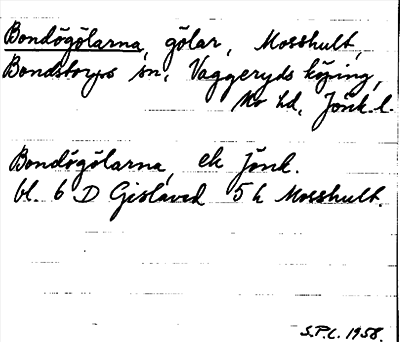 Bondögölarna, gölar, Mosshult,
Bondstorps sn, Vaggeryds köping,
Mo hd, Jönk. l.
Bondögölarna, ek Jönk.
bl. 6 D Gislaved 5 h Mosshult.
S.P.L. 1958.